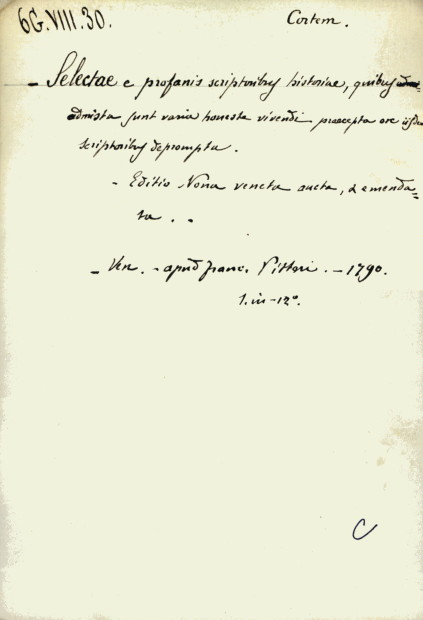 6G.VIII.30.
Cortem.
- Selectae e profanis scriptoribus historiae, quibus
admista sunt varia honeste vivendi praecepta ex iisdem
scriptoribus deprompta.
- Editio Nona veneta aucta, & emenda=
ta . .
- Ven. - apud Franc. Pitteri. - 1790.
1. in-12°.
C